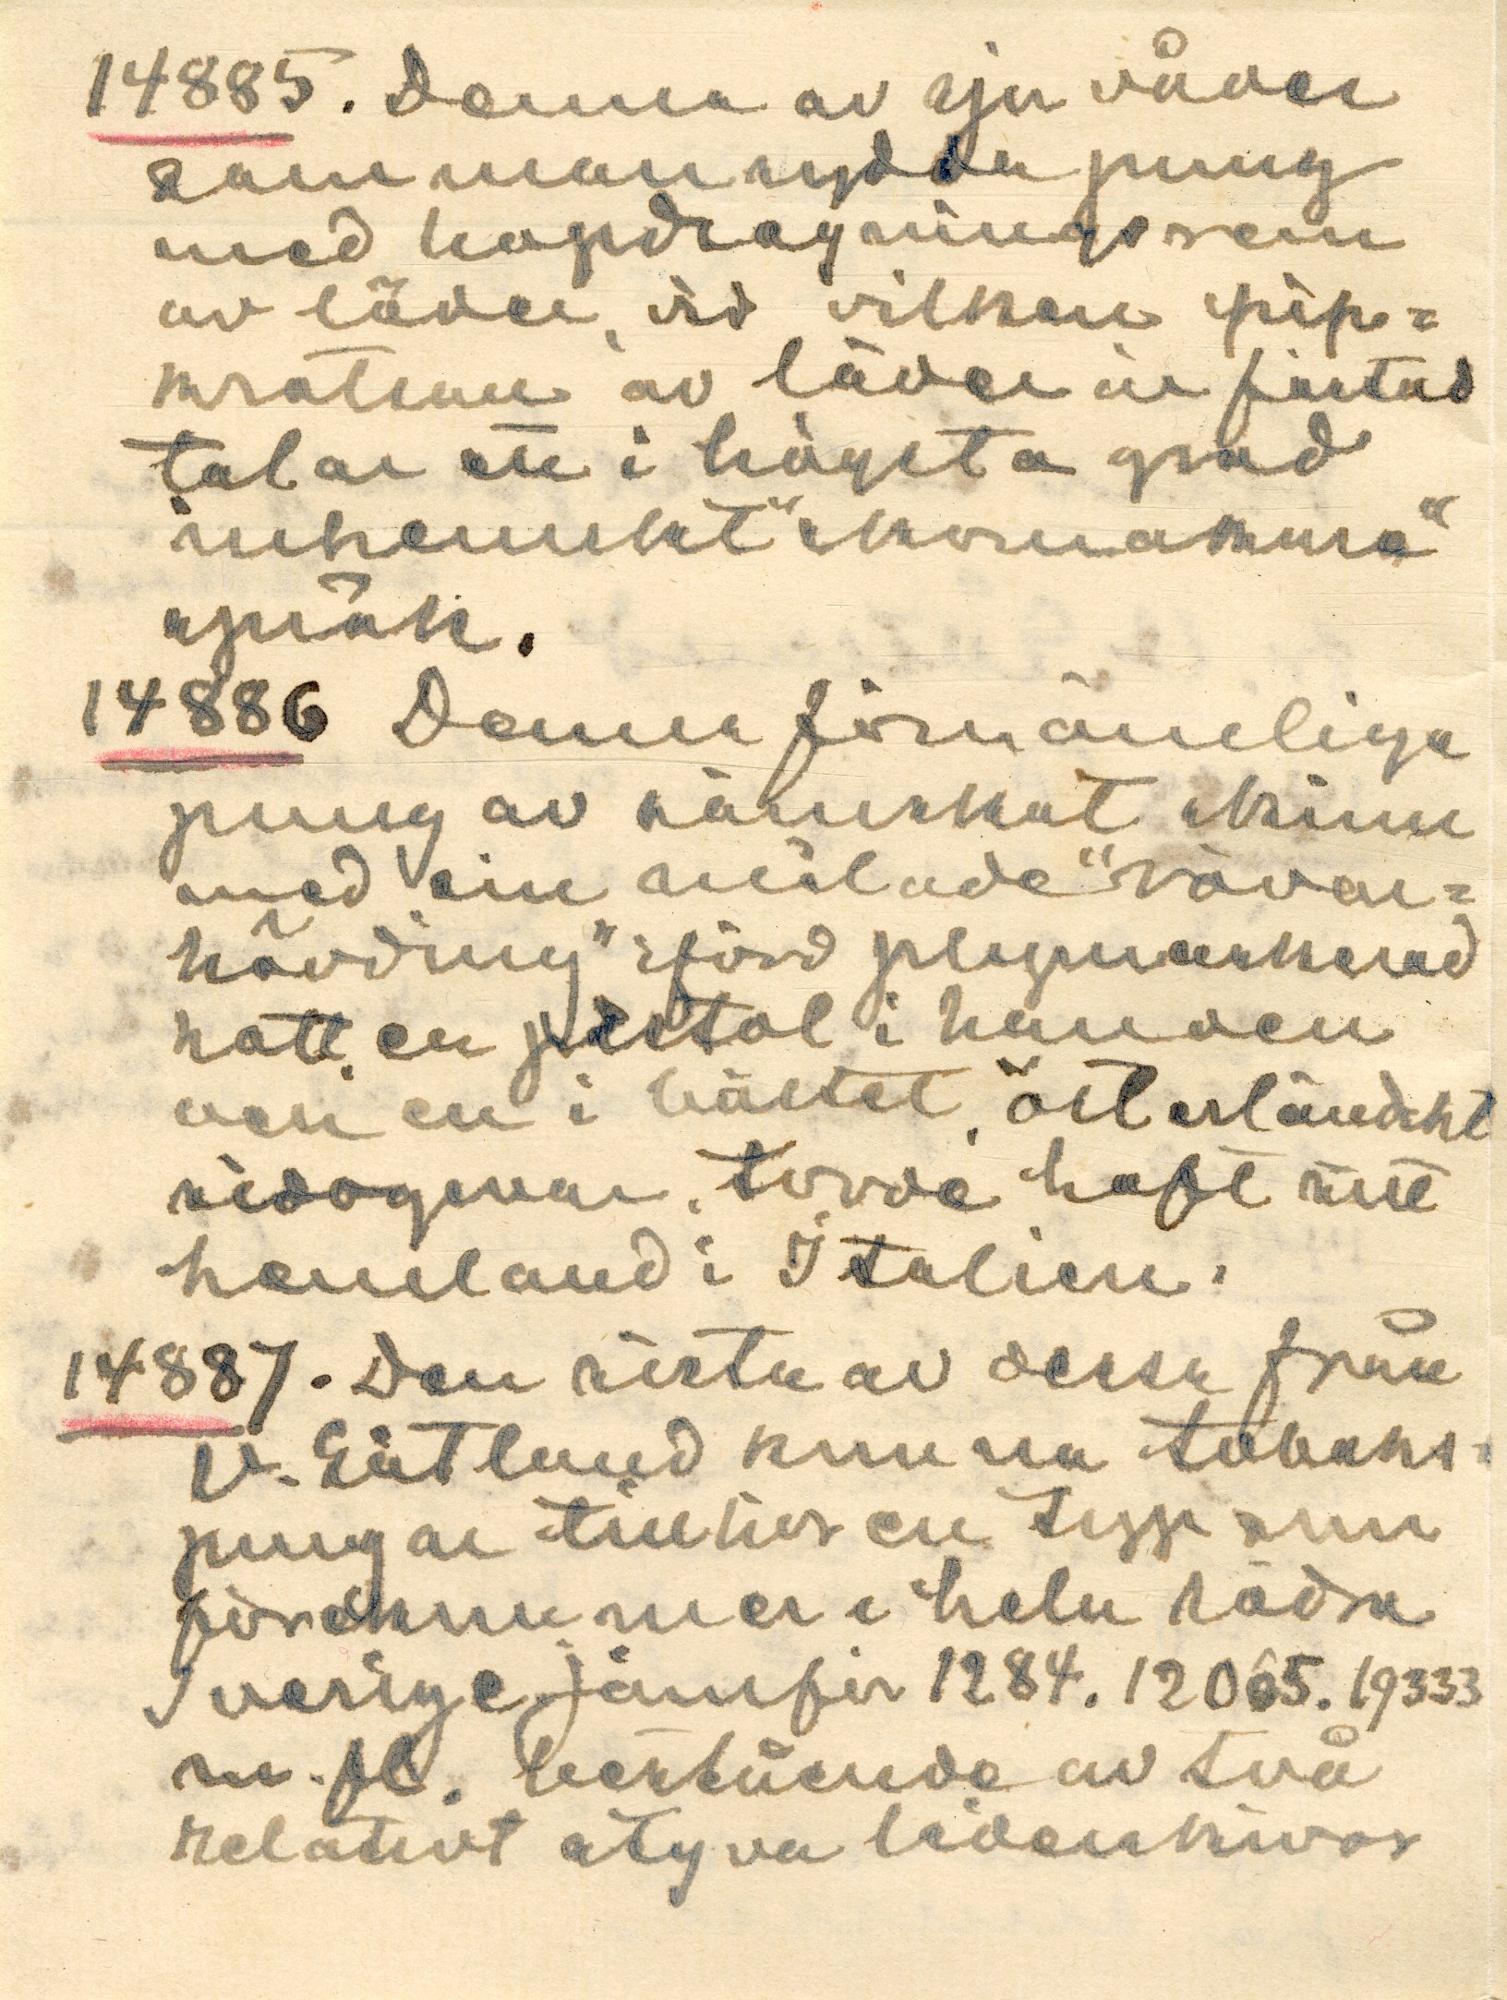 14885. Denna av sju våder
sammansydda pung
med hopdragningsrem
av läder, vid vilken pip=
kratsan av läder är fästad
talar ett i högsta grad
inhemskt "skomakare"
språk.
14886 Denna förnämliga
pung av sämskat skinn
med sin målade "rövar=
hövding" iförd plymaskerad
hatt, en pistol i handen
och en i bältet, österländskt
sidogevär, torde haft sitt
hemland i Italien.
14887. Den sista av dessa från
V. Götland komna tobaks=
pungar tillhör en typ som
förekommer i hela södra
Sverige, jämför 1284. 12065. 19333
m. fl. bestående av två
relativt styva läderskivor